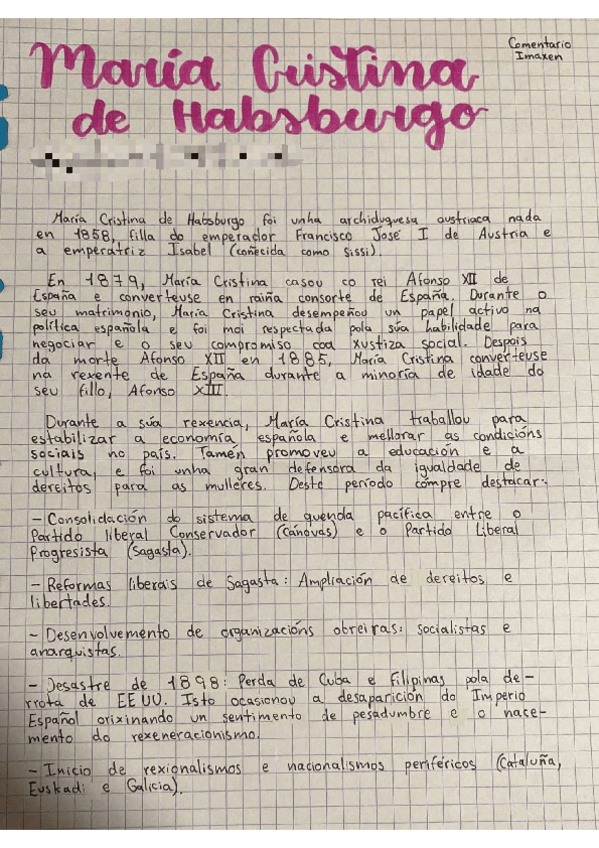 Comentario
Imaxen
María Cristina
de Habsburgo
María Cristina de Habsburgo foi unha archiduquesa austriaca nada
en 1858, filla do emperador Francisco José I de Austria e
a emperatriz Isabel (coñecida como Sissi).
En 1879, María Cristina casou co rei Afonso XII de
España e converteuse en raíña consorte de España. Durante o
seu matrimonio, María Cristina desempeñou un papel activo na
política española e foi moi respectada pola súa habilidade para
negociar e o seu compromiso coa xustiza social. Despois
da morte Afonso XII en 1885, María Cristina converteuse
na rexente de España durante a minoría de idade do
seu fillo, Afonso XIII.
Durante a súa rexencia, María Cristina traballou para
estabilizar a economía española e mellorar as condicións
sociais no país. Tamén promoveu a educación e a
cultura, e foi unha gran defensora da igualdade de
dereitos para as mulleres. Deste período cómpre destacar:
- Consolidación do sistema de quenda pacífica entre o
Partido liberal Conservador (Cánovas) e o Partido Liberal
Progresista (Sagasta).
- Reformas liberais de Sagasta: Ampliación de dereitos e
libertades.
- Desenvolvemento de organizacións obreiras: socialistas e
anarquistas.
- Desastre de 1898: Perda de Cuba e Filipinas pola de-
rrota de EEUU. Isto ocasionou a desaparición do Imperio
Español orixinando un sentimento de pesadumbre e o nace-
mento do rexeneracionismo.
- Inicio de rexionalismos e nacionalismos periféricos (Cataluña,
Euskadi e Galicia).